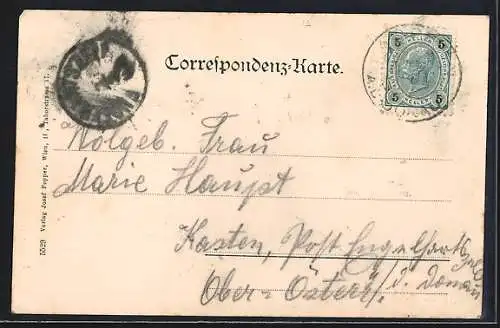 Correspondenz-Karte.
5
5
5
5
Wolgeb. Frau
Marie Haupt
Kasten, Post Engelhartszell
Ober-Österr. a. d. Donau
5529 Verlag Josef Popper, Wien, II., Taborstrasse 17.